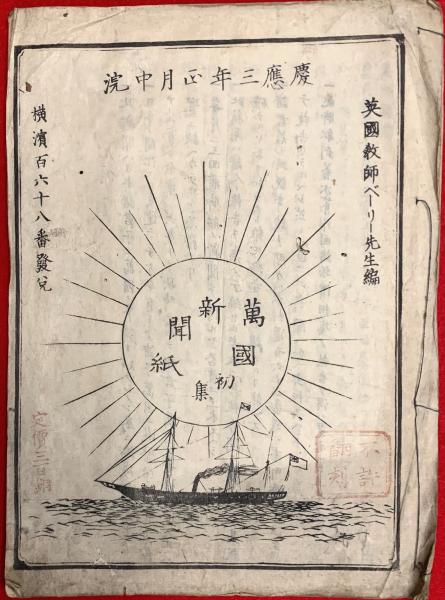 慶應三年正月中浣
英國教師ベーリー先生編
萬國
新聞紙
初集
橫濱百六十八番發兌
不許
翻刻
定價三百